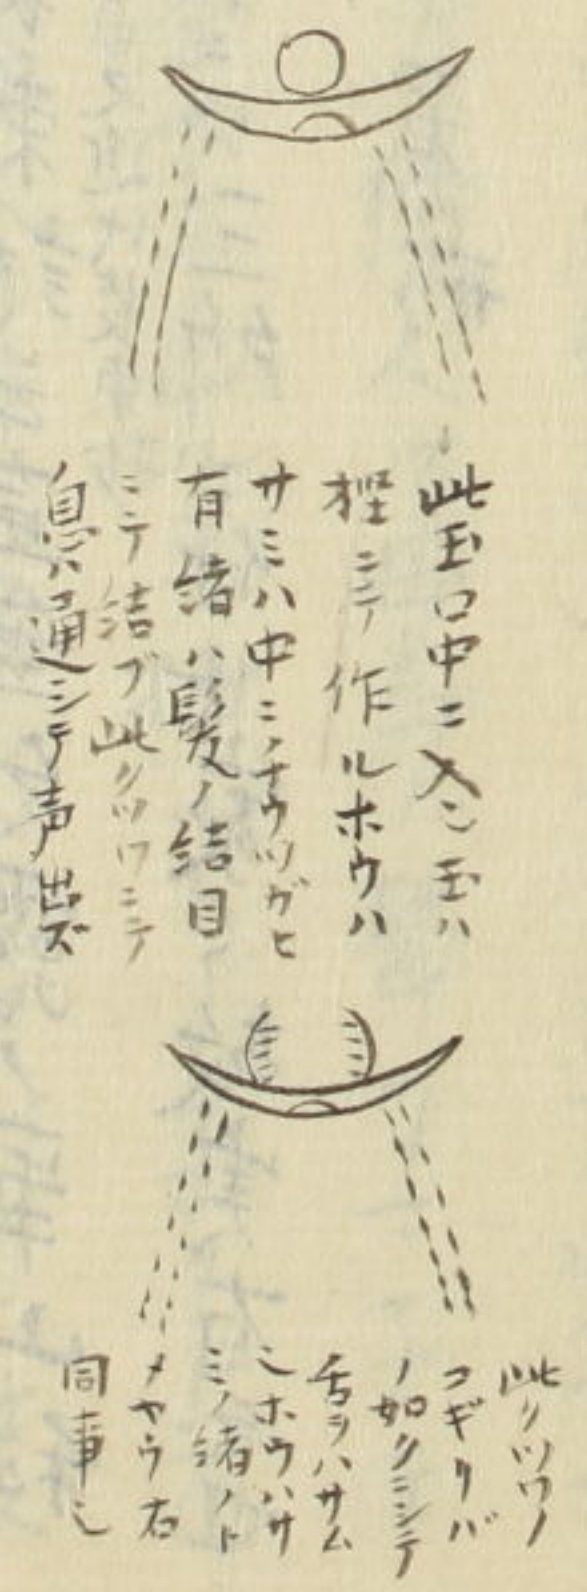 此玉口中ニ入ル玉ハ
樫ニテ作ルホウハ
サミハ中ニノチウツガヒ
有緒ハ髪ノ結目
ニテ結ブ此クツワニテ
息ハ通シテ声出ズ
此クツワノ
コギリバ
ノ如クニシテ
舌ヲハサム
ホウハサ
ミノ緒ノト
メヤウ右
同事也